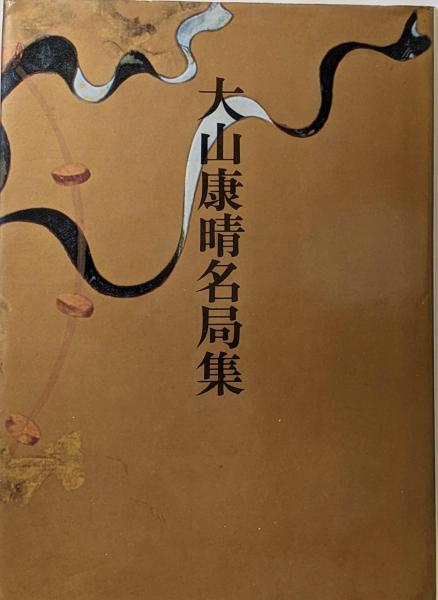 大山康晴名局集